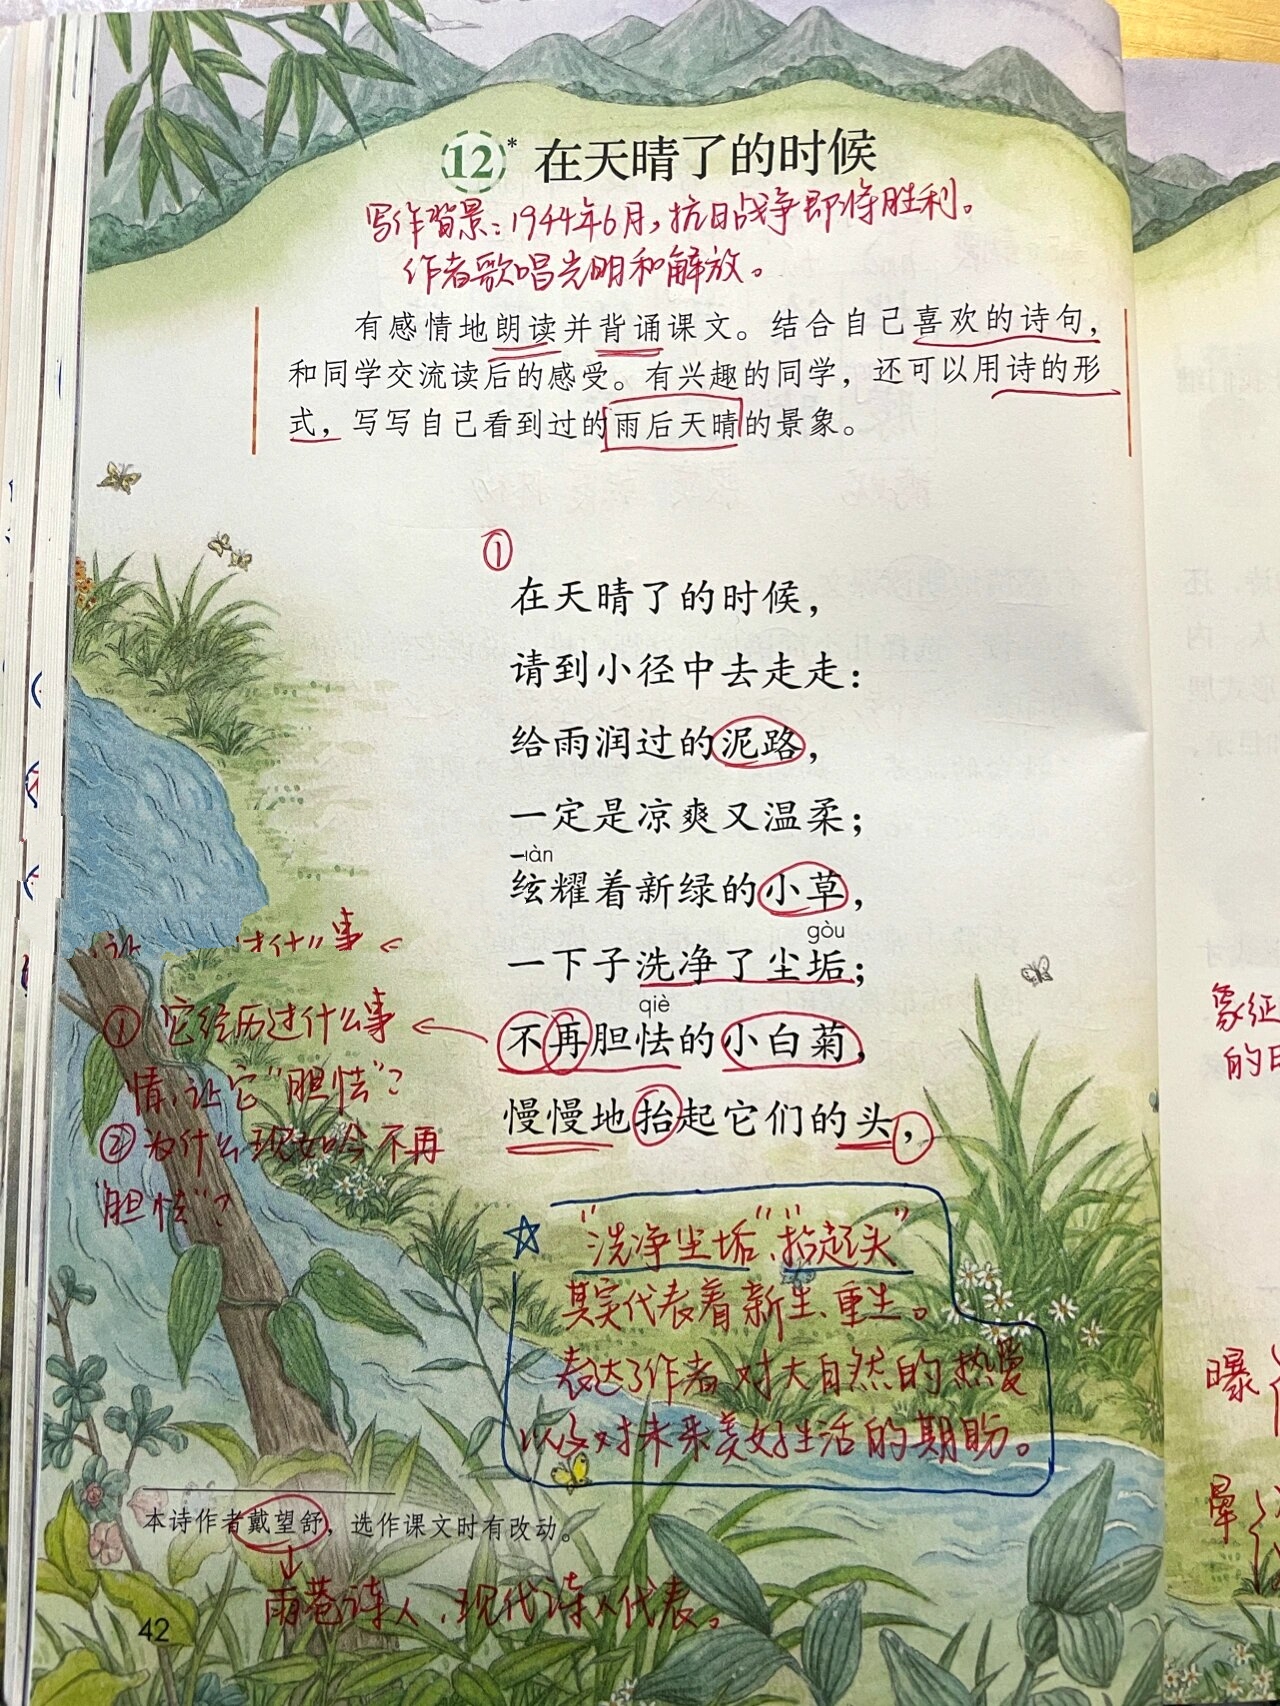 12* 在天晴了的时候
写作背景：1944年6月，抗日战争即将胜利。
作者歌唱光明和解放。
有感情地朗读并背诵课文。结合自己喜欢的诗句，
和同学交流读后的感受。有兴趣的同学，还可以用诗的形
式，写写自己看到过的雨后天晴的景象。
①
在天晴了的时候，
请到小径中去走走：
给雨润过的泥路，
一定是凉爽又温柔；
xiàn
炫耀着新绿的小草，
gòu
一下子洗净了尘垢；
qiè
不再胆怯的小白菊，
慢慢地抬起它们的头，
让 什么事
①它经历过什么事
情，让它“胆怯”？
②为什么现如今不再
“胆怯”？
☆“洗净尘垢”、“抬起头”
其实代表着新生、重生。
表达了作者对大自然的热爱
以及对未来美好生活的期盼。
本诗作者戴望舒，选作课文时有改动。
雨巷诗人、现代诗人代表。
42
象征
的
曝
晕